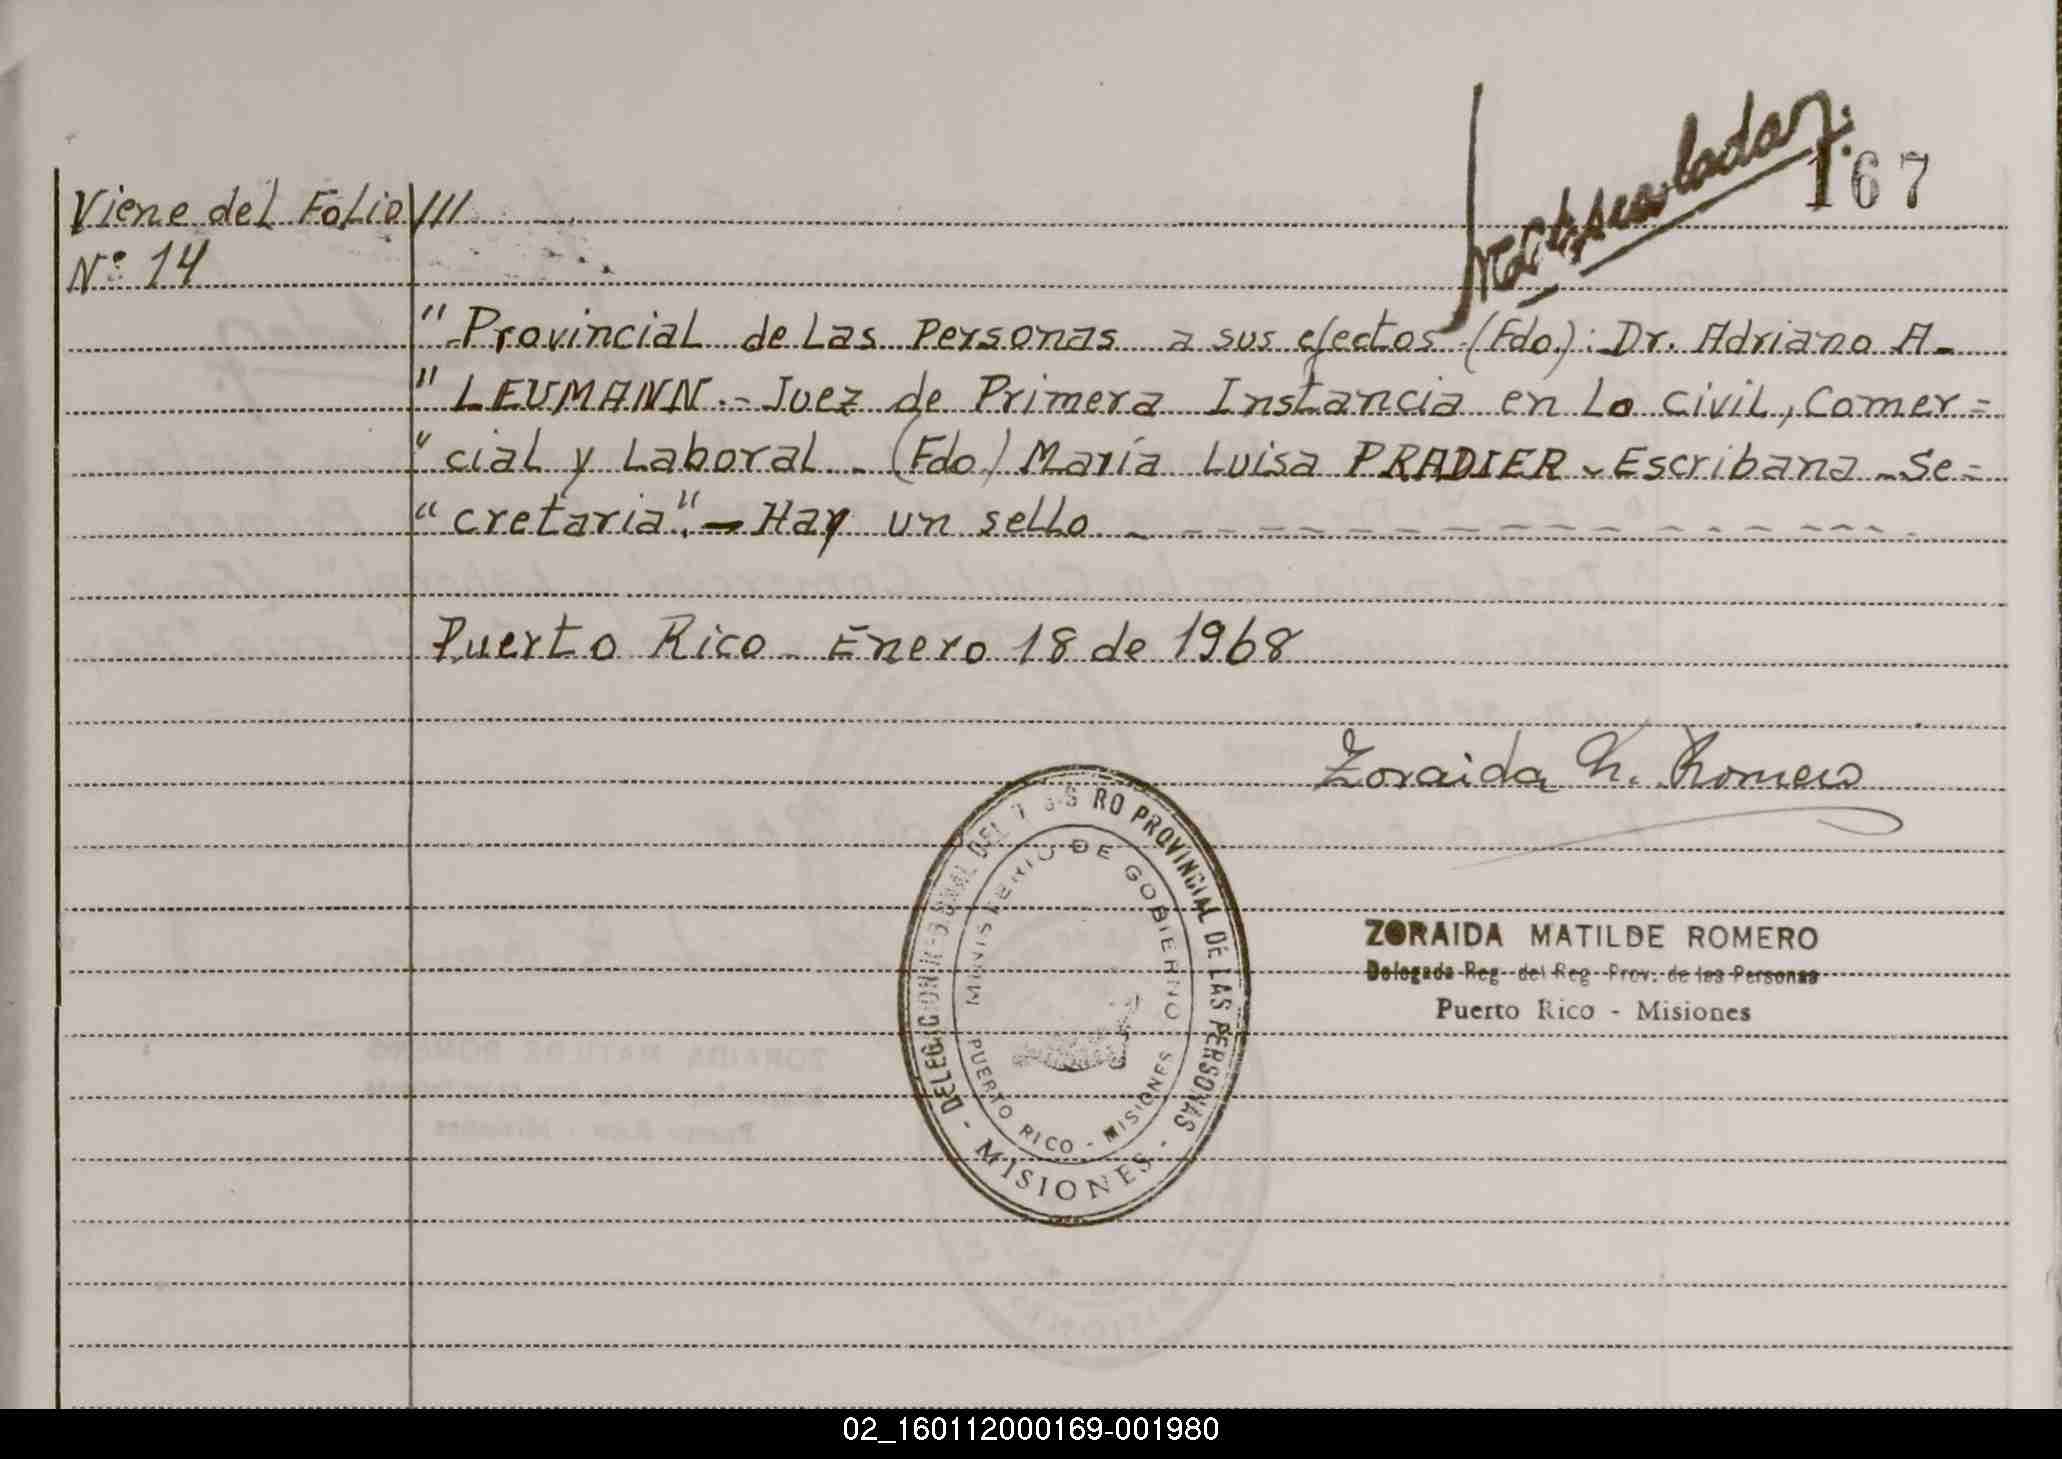 167
Viene del Folio ///
Nº 14
"Provincial de Las Personas a sus efectos.(Fdo.): Dr. Adriano A.
" LEUMANN.- Juez de Primera Instancia en Lo Civil, Comer=
" cial y Laboral.- (Fdo) María Luisa PRADIER - Escribana - Se=
" cretaria".- Hay un sello.
Puerto Rico - Enero 18 de 1968
Zoraida M. Romero
ZORAIDA MATILDE ROMERO
Delegada Reg. del Reg. Prov. de las Personas
Puerto Rico - Misiones
PROVINCIAL DE LAS PERSONAS - MISIONES -
MINISTERIO DE GOBIERNO
PUERTO RICO - MISIONES
02_160112000169-001980